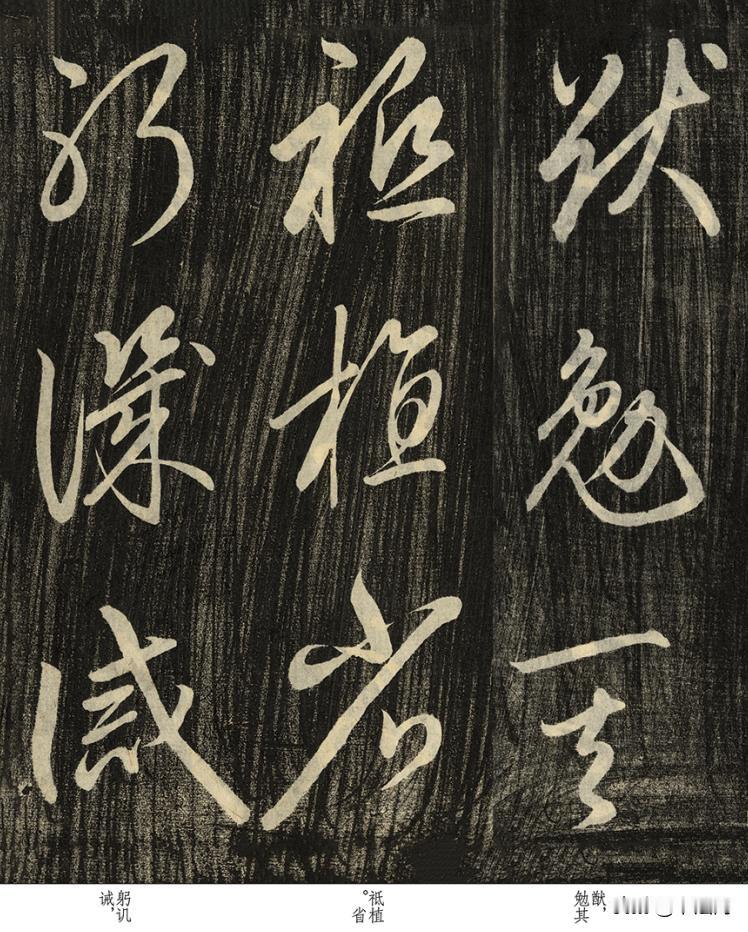 猷勉其
祗植省
躬譏誡
猷，
勉其
祗植
。省
躬讥
诫，